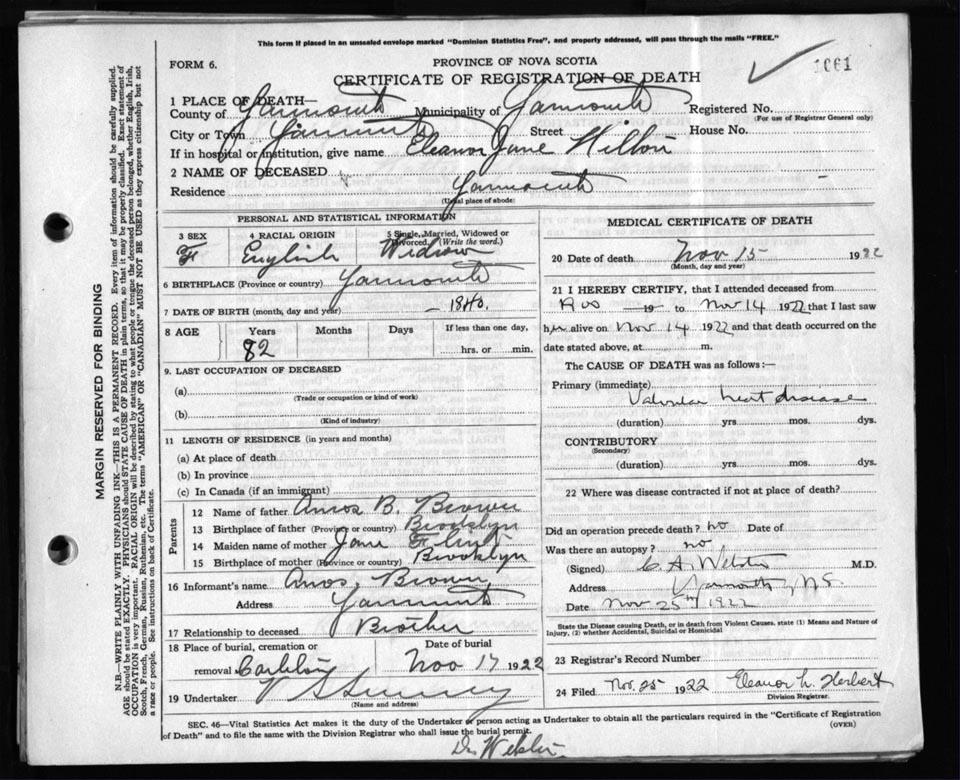 This form if placed in an unsealed envelope marked "Dominion Statistics Free", and property addressed, will pass through the mails "FREE."
FORM 6.
PROVINCE OF NOVA SCOTIA
CERTIFICATE OF REGISTRATION OF DEATH
1061
1 PLACE OF DEATH—
County of Yarmouth Municipality of Yarmouth Registered No.
(For use of Registrar General only)
City or Town Yarmouth Street House No.
If in hospital or institution, give name Eleanor Jane Hilton
2 NAME OF DECEASED
Residence Yarmouth
(Usual place of abode)
PERSONAL AND STATISTICAL INFORMATION
3 SEX 4 RACIAL ORIGIN 5 Single, Married, Widowed or Divorced. (Write the word.)
F English Widow
6 BIRTHPLACE (Province or country) Yarmouth
7 DATE OF BIRTH (month, day and year) — 1840.
8 AGE Years Months Days If less than one day,
82 hrs. or min.
9. LAST OCCUPATION OF DECEASED
(a)
(Trade or occupation or kind of work)
(b)
(Kind of industry)
11 LENGTH OF RESIDENCE (in years and months)
(a) At place of death
(b) In province
(c) In Canada (if an immigrant)
Parents
12 Name of father Amos B. Brown
13 Birthplace of father (Province or country) Brooklyn
14 Maiden name of mother Jane Flint
15 Birthplace of mother (Province or country) Brooklyn
16 Informant's name Amos. Brown,
Address Yarmouth
17 Relationship to deceased Brother
18 Place of burial, cremation or removal Date of burial
Nov 17 1922
19 Undertaker
(Name and address)
MEDICAL CERTIFICATE OF DEATH
20 Date of death Nov 15 1922
(Month, day and year)
21 I HEREBY CERTIFY, that I attended deceased from
19 to Nov 14 1922 that I last saw
her alive on Nov 14 1922 and that death occurred on the
date stated above, at m.
The CAUSE OF DEATH was as follows:—
Primary (immediate)
Valvular heart disease
(duration) yrs. mos. dys.
CONTRIBUTORY
(Secondary)
(duration) yrs. mos. dys.
22 Where was disease contracted if not at place of death?
Did an operation precede death? no Date of
Was there an autopsy? no
(Signed) C. A. Webster M.D.
Address Yarmouth, N.S.
Date Nov 25th 1922
State the Disease causing Death, or in death from Violent Causes. state (1) Means and Nature of
Injury, (2) whether Accidental, Suicidal or Homicidal
23 Registrar's Record Number
24 Filed Nov. 25 1922 Eleanor L. Herbert
Division Registrar.
SEC. 46—Vital Statistics Act makes it the duty of the Undertaker or person acting as Undertaker to obtain all the particulars required in the "Certificate of Registration
of Death" and to file the same with the Division Registrar who shall issue the burial permit.
(OVER)
Dr. Webster.
MARGIN RESERVED FOR BINDING
N.B.—WRITE PLAINLY WITH UNFADING INK—THIS IS A PERMANENT RECORD. Every item of information should be carefully supplied.
AGE should be stated EXACTLY. PHYSICIANS should STATE CAUSE OF DEATH in plain terms, so that it may be properly classified. Exact statement of
OCCUPATION is very important. RACIAL ORIGIN will be described by stating to what people or tongue the deceased person belonged, whether English, Irish,
Scotch, French, German, Russian, Ruthenian, etc. The terms "AMERICAN" OR "CANADIAN" MUST NOT BE USED as they express citizenship but not
a race or people. See instructions on back of Certificate.